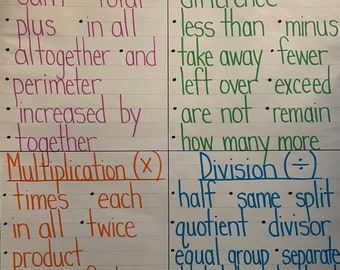 sum · total
plus · in all
· altogether · and
· perimeter
· increased by
· together
difference
· less than · minus
· take away · fewer
· left over · exceed
· are not · remain
· how many more
Multiplication (x)
· times · each
· in all · twice
· product
Division (÷)
· half · same · split
· quotient · divisor
· equal group · separate